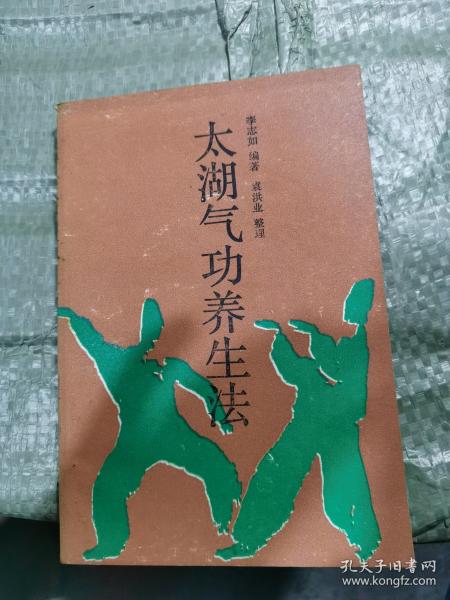 李志如 编著 袁洪业 整理
太湖气功养生法
孔夫子旧书网
www.kongfz.com